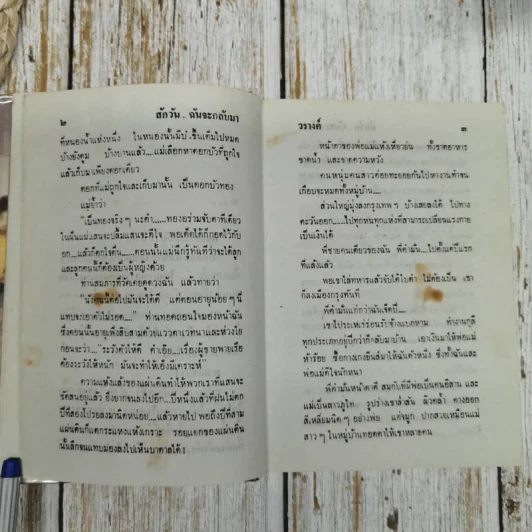 ๒
สักวัน... ฉันจะกลับมา
ที่หนองน้ำแห่งหนึ่ง ในหนองนั้นมีบัวขึ้นเต็มไปหมด
บ้างยังตูม บ้างบานแล้ว....แม่เลือกหาดอกบัวที่ถูกใจ
แล้วเก็บมาเพียงดอกเดียว
ดอกที่แม่ถูกใจและเก็บมานั้น เป็นดอกบัวทอง
แม่ย้ำว่า
"เป็นทองจริงๆ นะคำ.....ทองอร่ามจับตาทีเดียว
ในฝันแม่เสนจะปลื้มเสนจะดีใจ พอเด็ดได้ก็กอดไว้กับ
อก...แล้วก็ตกตื่น....ตอนนั้นแม่นึกรู้ทันทีว่าจะได้ลูก
และลูกคนนี้ก็ต้องเป็นผู้หญิงด้วย
ท่านสมภารที่วัดเคยดูดวงฉัน แล้วทายว่า
"นังคนนี้ต่อไปมันจะได้ดี แต่ตอนอายุน้อยๆ นี่
แทบจะเอาตัวไม่รอด...." ท่านทอดถอนใจมองหน้าฉัน
ซึ่งตอนนั้นอายุเพิ่งสิบสามด้วยแววตาเวทนาและห่วงใย
ก่อนจะว่า "...ระวังตัวให้ดี คำเอ๊ย....เรื่องผู้ชายพายเรือ
ต้องระวังให้หนัก มันจะทำให้เอ็งมีเคราะห์"
ความแห้งแล้งของแผ่นดินทำให้พวกเราแสนจะ
ขัดสนอยู่แล้ว ยิ่งยากจนลงไปอีก...ปีหนึ่งแล้วที่ฝนไม่ตก
ปีที่สองโปรยลงมานิดหน่อย....แล้วหายไป พอถึงปีที่สาม
แผ่นดินก็แตกระแหงแห้งเกราะ รอยแยกของแผ่นดิน
นั้นลึกจนแทบมองลงไปเห็นบาดาลได้!
วรางค์
๓
หน้าตาของพ่อแม่แห้งเหี่ยวย่น ทั้งขาดอาหาร
ขาดน้ำ และขาดความหวัง
คนหนุ่มคนสาวค่อยทะยอยกันไปหางานทำจน
เกือบจะหมดทั้งหมู่บ้าน....
ส่วนใหญ่มุ่งลงกรุงเทพฯ บ้างเลยลงใต้ ไปทาง
ตะวันออก.....ไปทุกหนทุกแห่งที่สามารถเปลี่ยนแรงกาย
เป็นเงินได้
พี่ชายคนเดียวของฉัน พี่คำมั่น...ไปตั้งแต่ปีแรก
ที่แล้งแล้ว
พอเขาใส่ทหารแล้วจับได้ใบดำ ไม่ต้องเป็น เขา
ก็ลงเมืองกรุงทันที
พี่คำมั่นแก่กว่าฉันเจ็ดปี....
เขาไประเหเร่ร่อนรับจ้างแบกหาม ทำงานกุลี
ทุกประเภทอยู่ปีกว่าก็กลับมาบ้าน เอาเงินมาให้พ่อแม่
ห้าร้อย ซื้อกางเกงยีนส์มาให้ฉันตัวหนึ่ง ซึ่งทั้งฉันและ
พ่อแม่ดีใจนักหนา
พี่คำมั่นหน้าตาดี สมกับที่มีพ่อเป็นคนอีสาน และ
แม่เป็นสาวภูไท รูปร่างเขาล่ำสัน ผิวคล้ำ คางออก
สี่เหลี่ยมนิดๆ อย่างพ่อ แต่จมูก ปากสวยเหมือนแม่
สาวๆ ในหมู่บ้านทอดตาให้เขาหลายคน